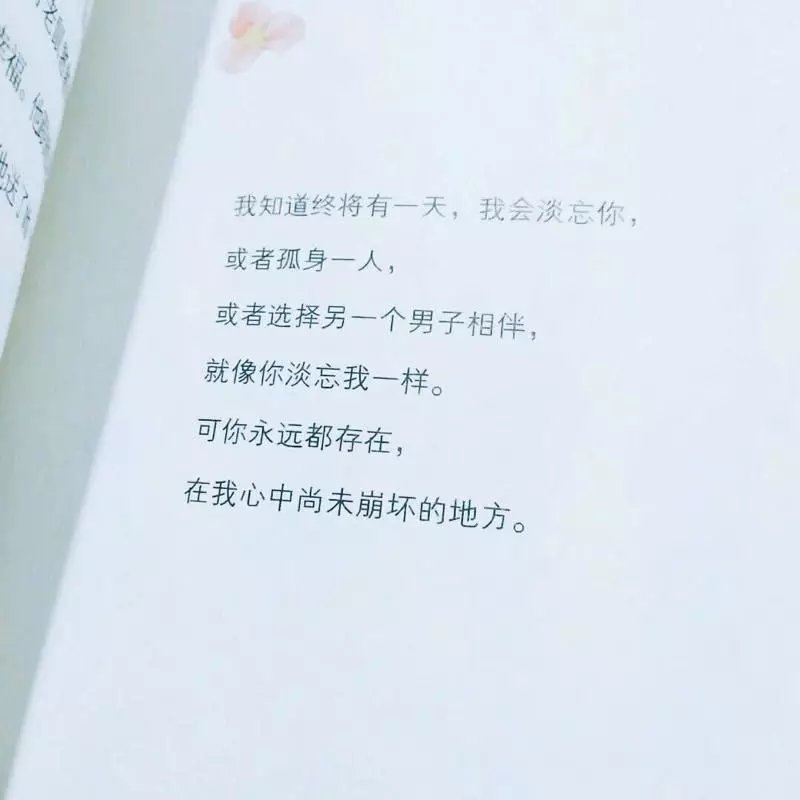 幸福。他
他送了
我知道终将有一天，我会淡忘你，
或者孤身一人，
或者选择另一个男子相伴，
就像你淡忘我一样。
可你永远都存在，
在我心中尚未崩坏的地方。